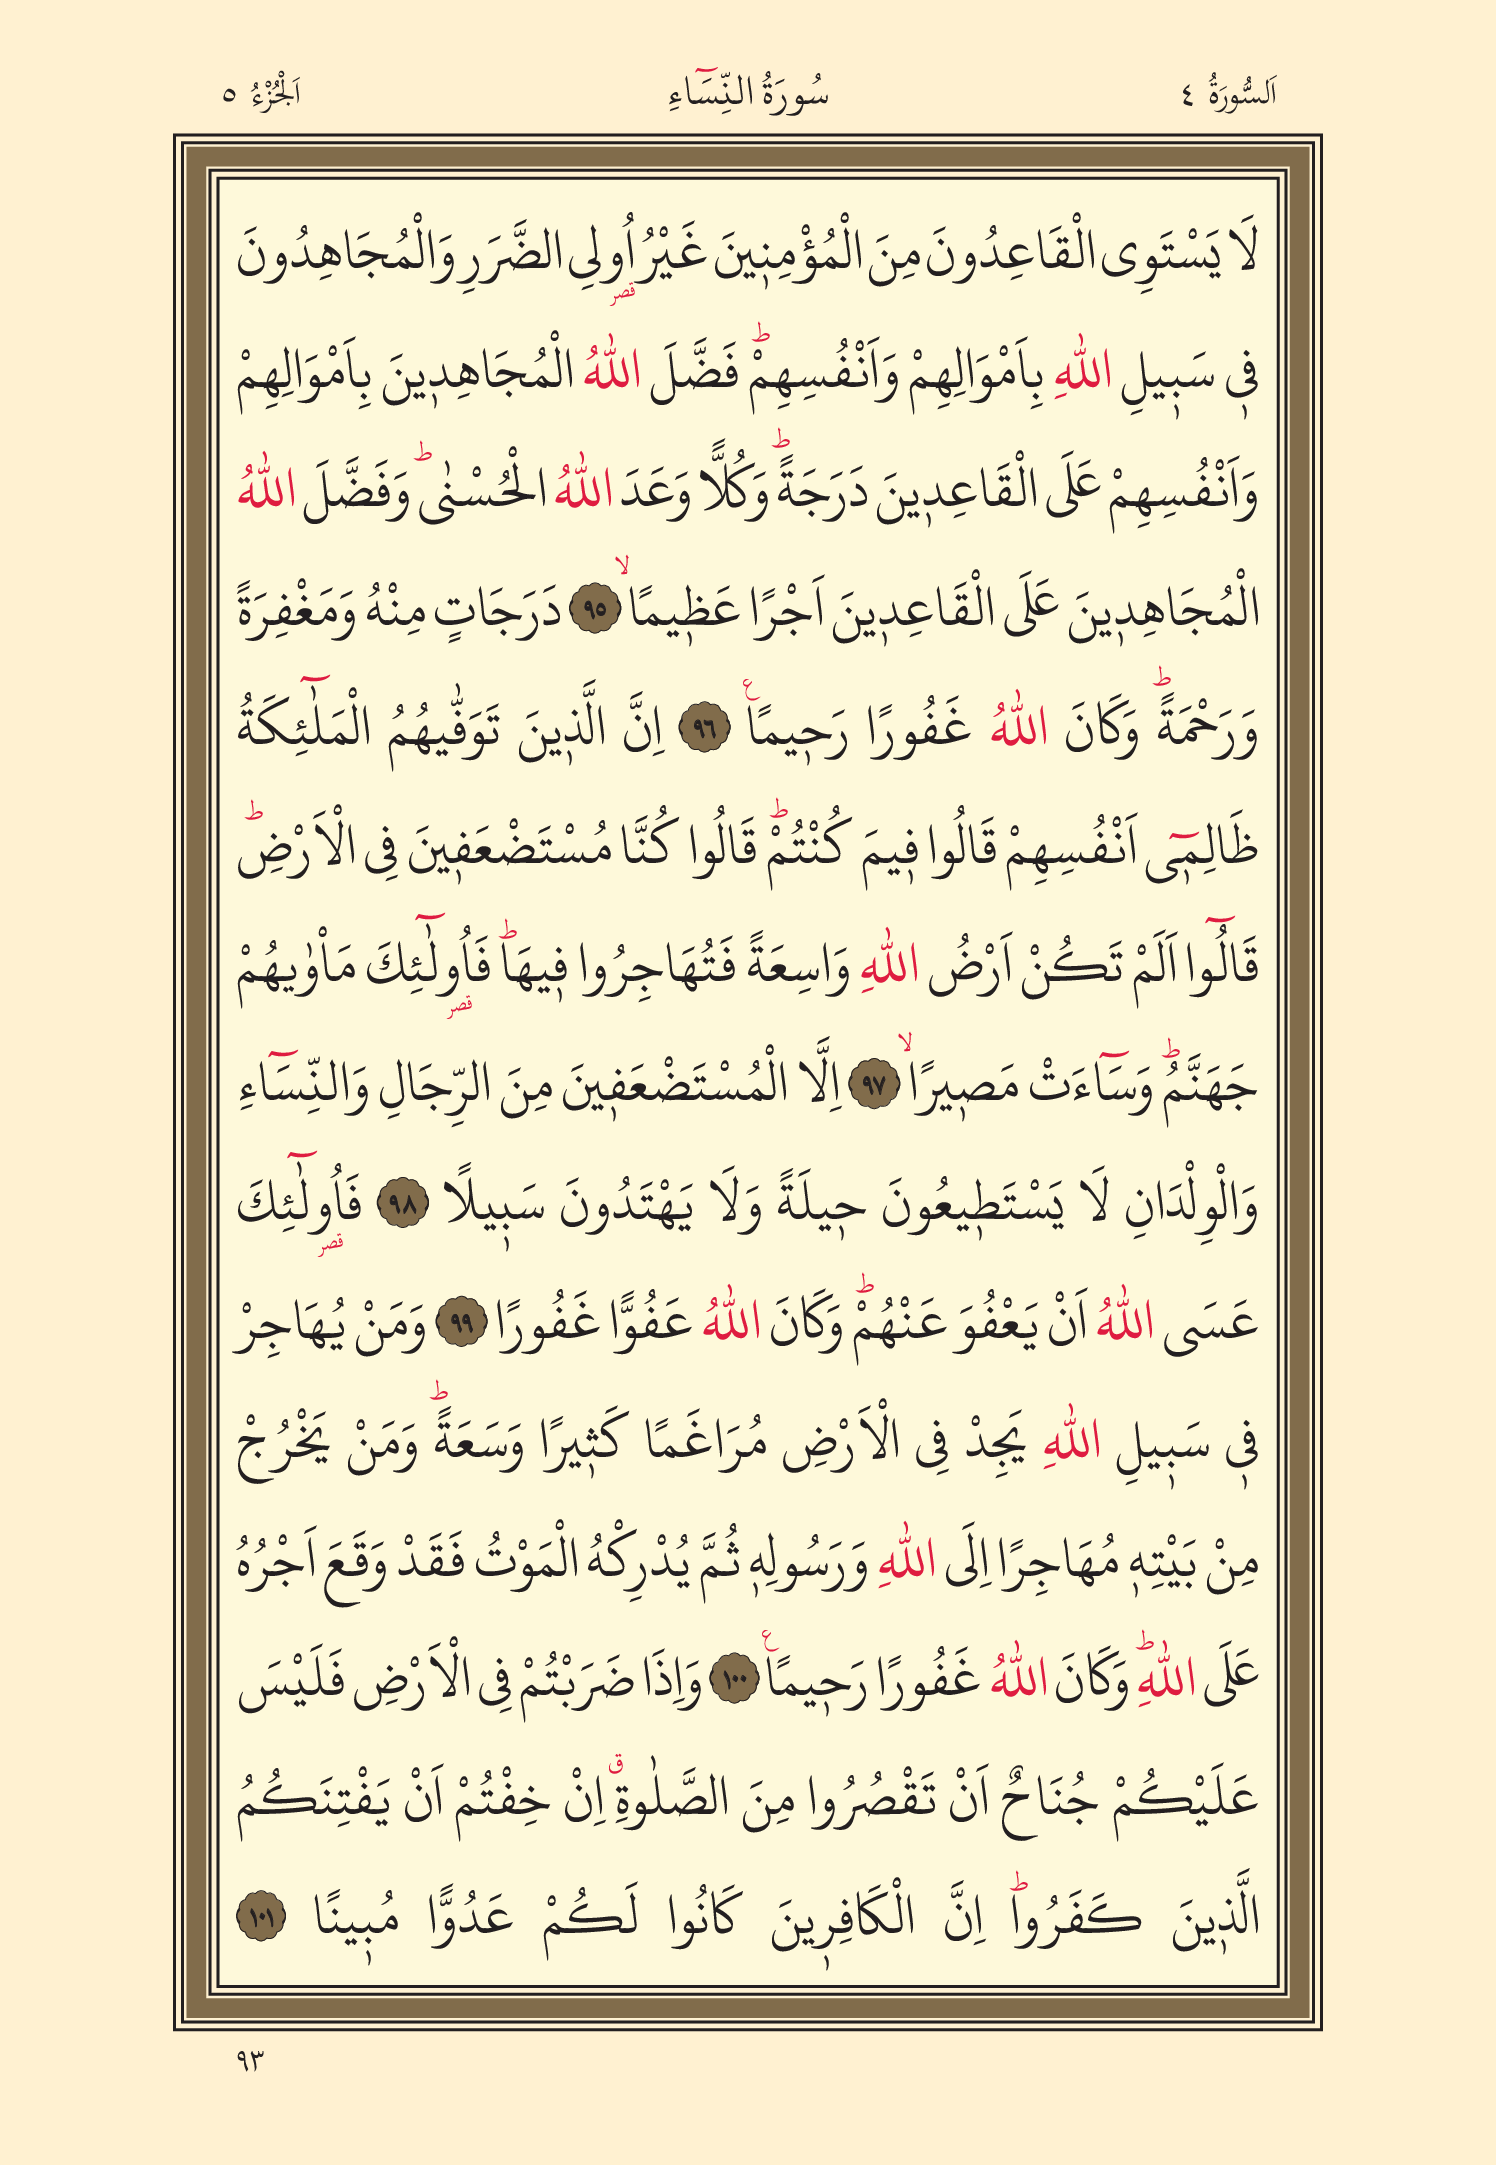 اَلسُّورَةُ ٤ سُورَةُ النِّسَٓاءِ اَلْجُزْءُ ٥
لَا يَسْتَوِى الْقَاعِدُونَ مِنَ الْمُؤْمِن۪ينَ غَيْرُ اُو۬لِى الضَّرَرِ وَالْمُجَاهِدُونَ
قصر
ف۪ى سَب۪يلِ اللّٰهِ بِاَمْوَالِهِمْ وَاَنْفُسِهِمْۜ فَضَّلَ اللّٰهُ الْمُجَاهِد۪ينَ بِاَمْوَالِهِمْ
وَاَنْفُسِهِمْ عَلَى الْقَاعِد۪ينَ دَرَجَةًۜ وَكُلًّا وَعَدَ اللّٰهُ الْحُسْنٰىۜ وَفَضَّلَ اللّٰهُ
الْمُجَاهِد۪ينَ عَلَى الْقَاعِد۪ينَ اَجْرًا عَظ۪يمًاۙ ٩٥ دَرَجَاتٍ مِنْهُ وَمَغْفِرَةً
وَرَحْمَةًۜ وَكَانَ اللّٰهُ غَفُورًا رَح۪يمًا ع ٩٦ اِنَّ الَّذ۪ينَ تَوَفّٰيهُمُ الْمَلٰٓئِكَةُ
ظَالِم۪ٓى اَنْفُسِهِمْ قَالُوا ف۪يمَ كُنْتُمْۜ قَالُوا كُنَّا مُسْتَضْعَف۪ينَ فِى الْاَرْضِۜ
قَالُٓوا اَلَمْ تَكُنْ اَرْضُ اللّٰهِ وَاسِعَةً فَتُهَاجِرُوا ف۪يهَاۜ فَاُو۬لٰٓئِكَ مَاْوٰيهُمْ
قصر
جَهَنَّمُۜ وَسَٓاءَتْ مَص۪يرًاۙ ٩٧ اِلَّا الْمُسْتَضْعَف۪ينَ مِنَ الرِّجَالِ وَالنِّسَٓاءِ
وَالْوِلْدَانِ لَا يَسْتَط۪يعُونَ ح۪يلَةً وَلَا يَهْتَدُونَ سَب۪يلًا ٩٨ فَاُو۬لٰٓئِكَ
قصر
عَسَى اللّٰهُ اَنْ يَعْفُوَ عَنْهُمْۜ وَكَانَ اللّٰهُ عَفُوًّا غَفُورًا ٩٩ وَمَنْ يُهَاجِرْ
ف۪ى سَب۪يلِ اللّٰهِ يَجِدْ فِى الْاَرْضِ مُرَاغَمًا كَث۪يرًا وَسَعَةًۜ وَمَنْ يَخْرُجْ
مِنْ بَيْتِه۪ مُهَاجِرًا اِلَى اللّٰهِ وَرَسُولِه۪ ثُمَّ يُدْرِكْهُ الْمَوْتُ فَقَدْ وَقَعَ اَجْرُهُ
عَلَى اللّٰهِۜ وَكَانَ اللّٰهُ غَفُورًا رَح۪يمًا ع ١٠٠ وَاِذَا ضَرَبْتُمْ فِى الْاَرْضِ فَلَيْسَ
عَلَيْكُمْ جُنَاحٌ اَنْ تَقْصُرُوا مِنَ الصَّلٰوةِۗ اِنْ خِفْتُمْ اَنْ يَفْتِنَكُمُ
الَّذ۪ينَ كَفَرُواۜ اِنَّ الْكَافِر۪ينَ كَانُوا لَكُمْ عَدُوًّا مُب۪ينًا ١٠١
٩٣